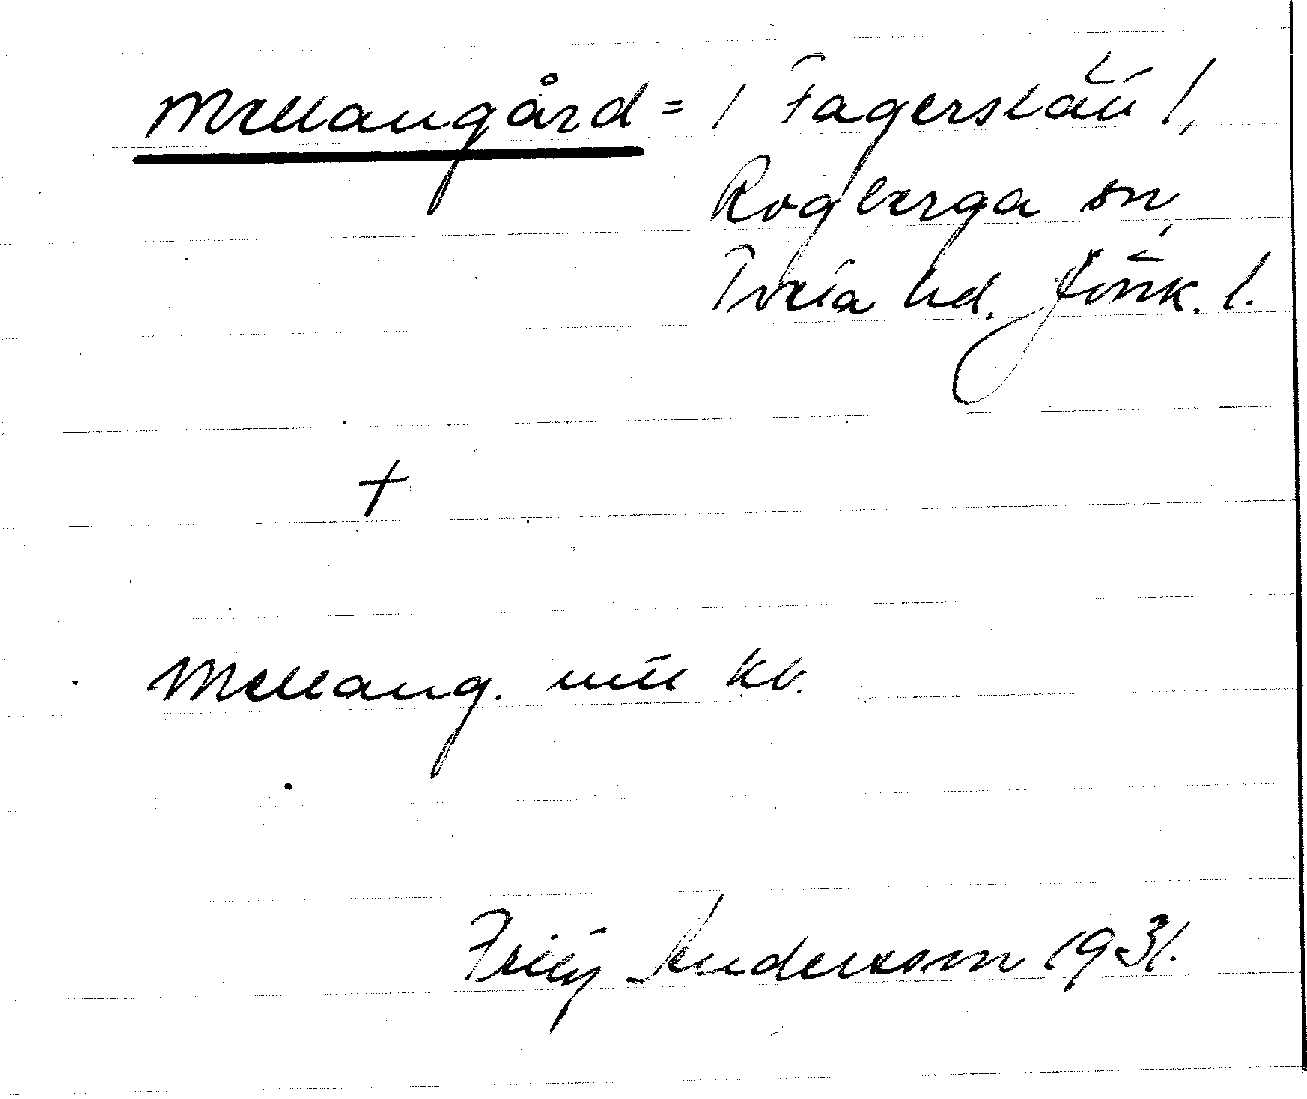 Mellangård = / Fagerslätt /,
Rogberga sn,
Tveta hd. Jönk. l.
+
Mellang. kb.
Fritz Andersson 1931.